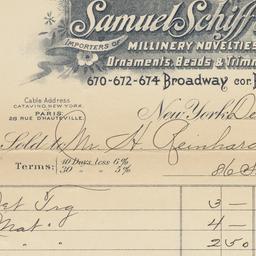 Samuel Schiff
IMPORTERS OF
MILLINERY NOVELTIES
Ornaments, Beads & Trimm
670-672-674 Broadway cor. B
Cable Address
CATAVINO, NEW YORK.
PARIS:
28 RUE D'HAUTEVILLE.
New York, De
Sold to Mr H. Reinhard
Terms: 10 Days, less 6%
30 " " 5%
86 S
Jet Trg 3 —
Mat " 4 —
" " 2 50